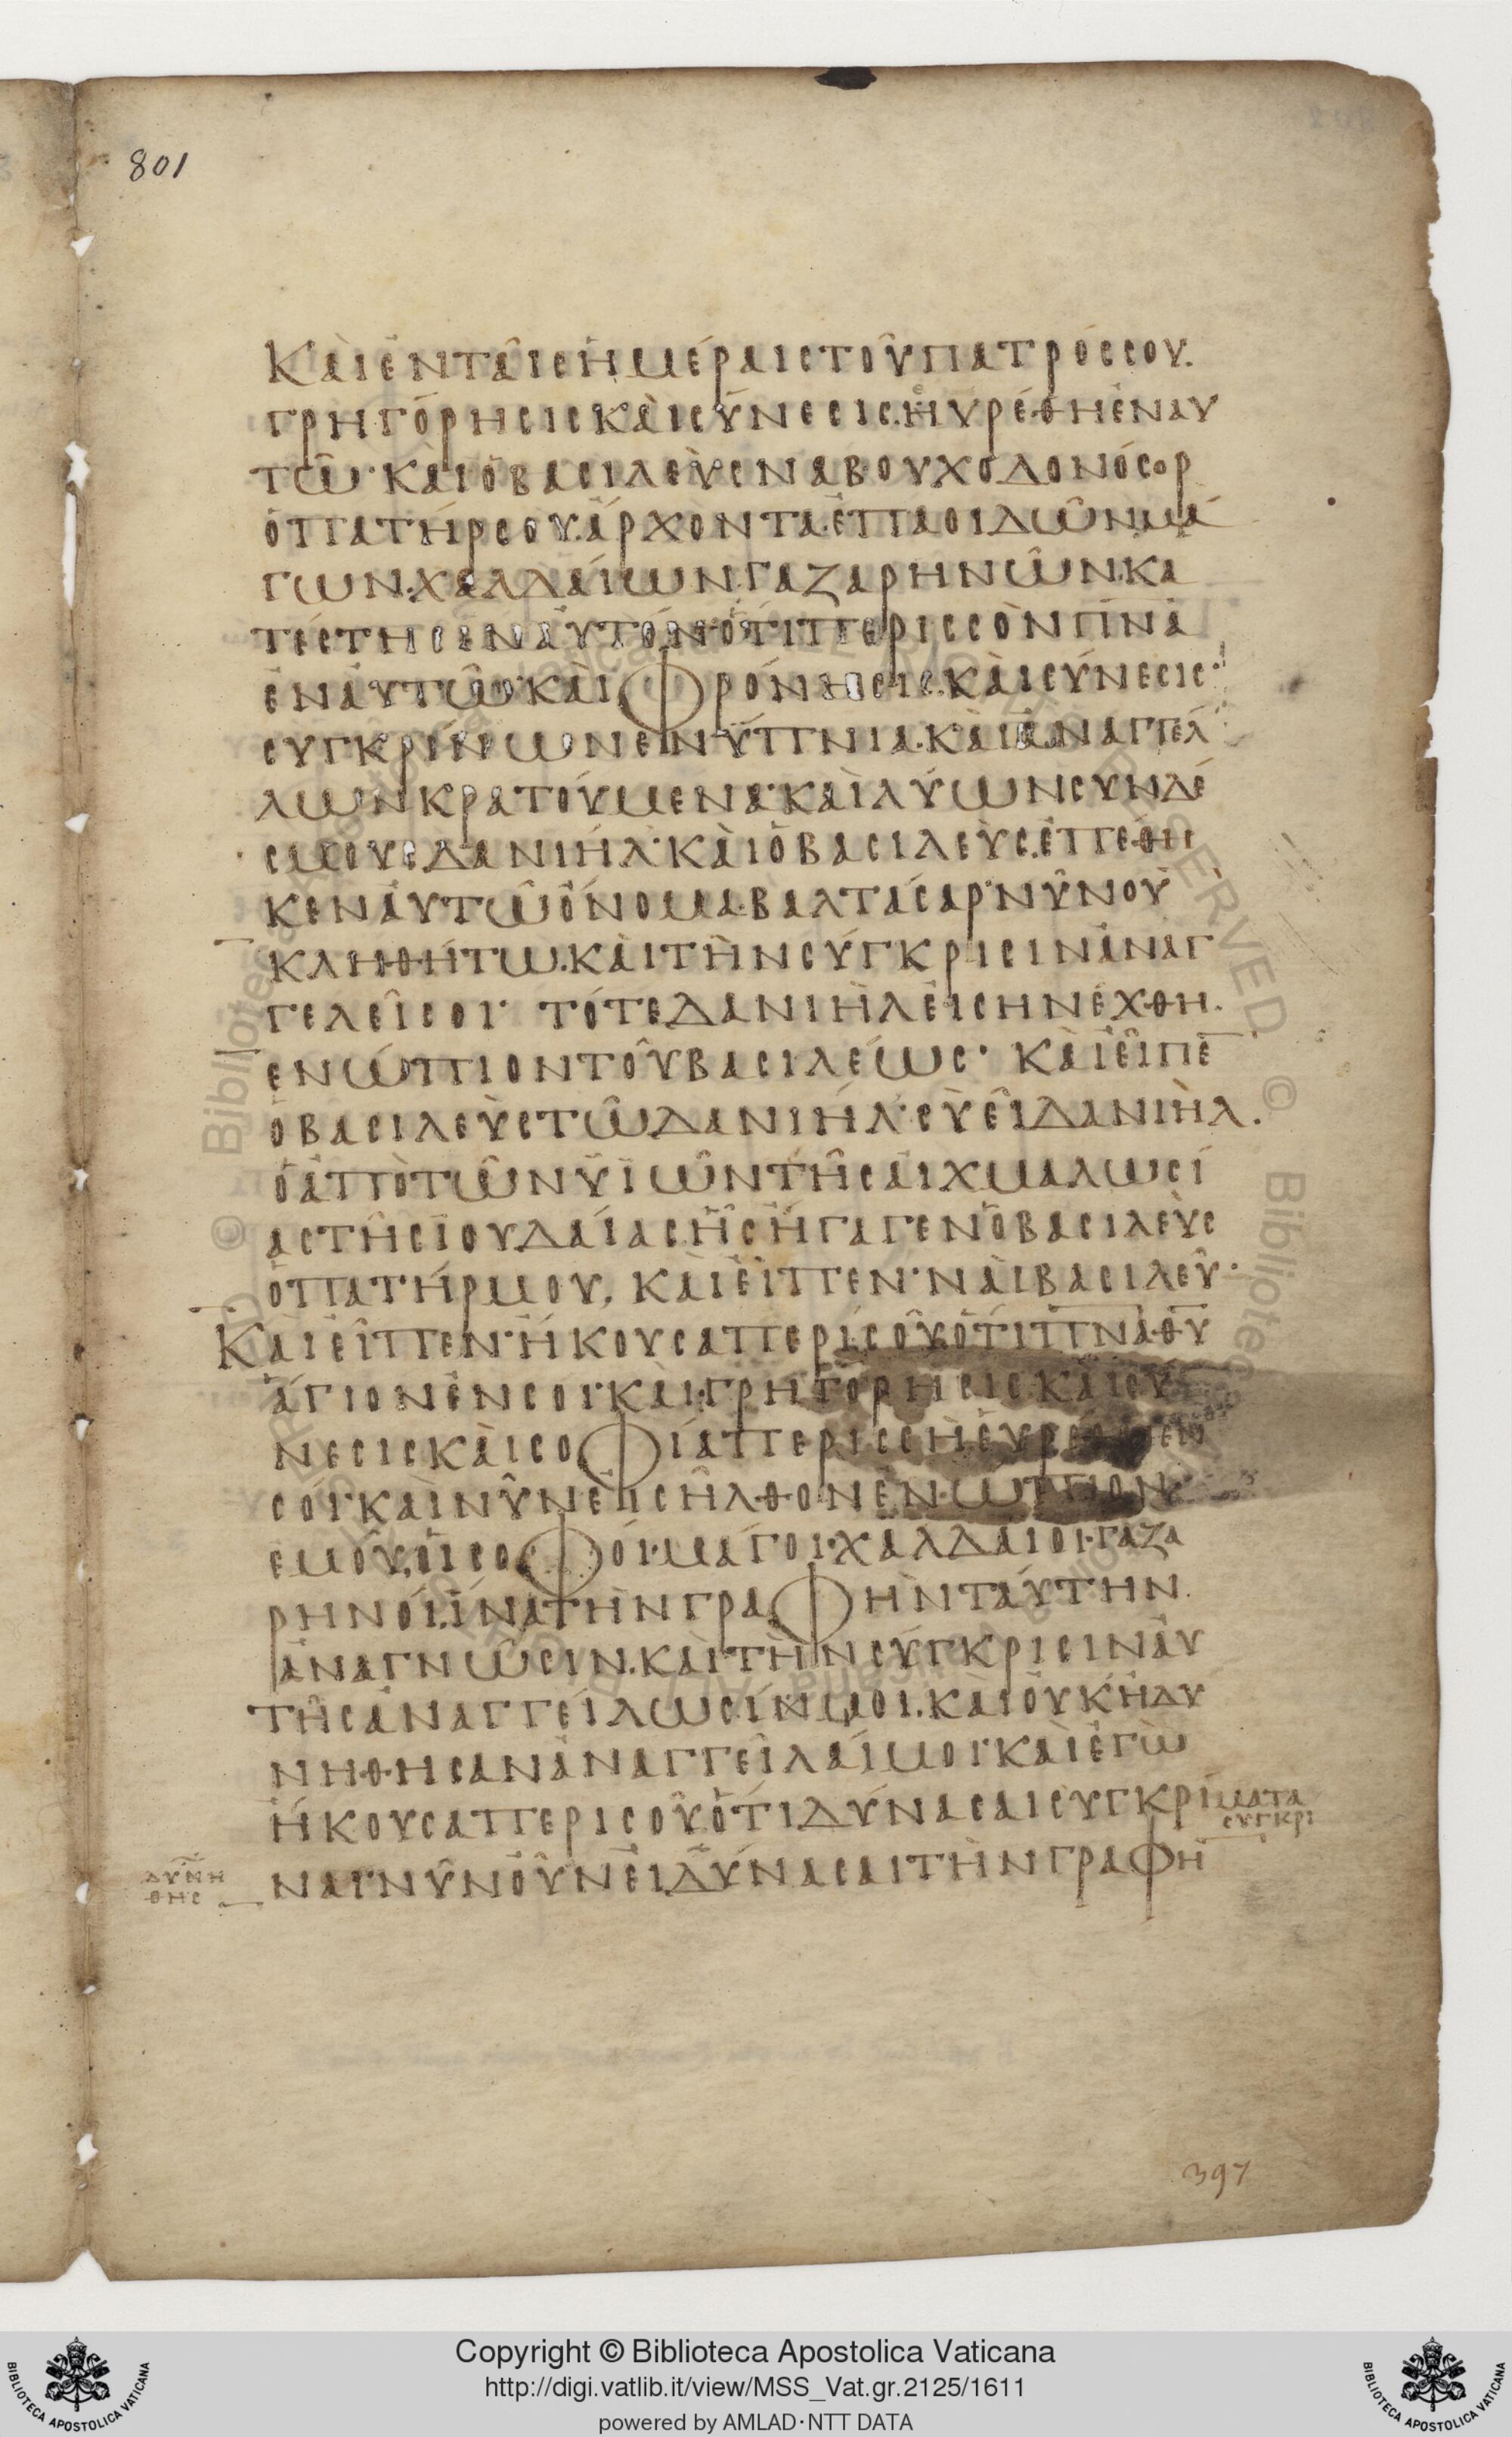 801
Καὶ ἐν ταῖς ἡμέραις τοῦ πατρός σου.
γρηγόρησις καὶ σύνεσις. ηὑρέθη ἐν αυ
τῶ· καὶ ὁ βασιλεὺς ναβουχοδονόσορ
ὁ πατήρ σου. ἄρχοντα. ἐπαοιδῶν μά
γων. χαλδαίων. γαζαρηνῶν. κα
τέστησεν ἀυτόν· ὅτι περισσὸν πνα
ἐν ἀυτῶ· καὶ φρόνησις. καὶ σύνεσις·
συγκρίνων ἐνύπνια. καὶ ἀναγγέλ
λων κρατούμενα· καὶ λύων συνδέ
σμους δανιήλ· καὶ ὁ βασιλεὺς. ἐπέθη
κεν ἀυτῶ ὄνομα. βαλτάσαρ· νῦν οὐ
κληθήτω. καὶ τὴν σύγκρισιν ἀναγ
γελεῖ σοι· τότε δανιὴλ εἰσηνέχθη.
ενώπιον τοῦ βασιλέως· καὶ εἶπε
ὁ βασιλεὺς τῶ δανιήλ· σὺ εἶ δανιὴλ.
ὁ ἀπὸ τῶν ϋἱῶν τῆς αἰχμαλωσί
ας τῆς ἰουδαίας ἧς ἤγαγεν ὁ βασιλεὺς
ὁ πατήρ μου, καὶ εἶπεν· ναὶ βασιλεῦ·
Καὶ εἶπεν· ἤκουσα περί σοῦ. ὅτι πνα θυ
ἅγιον ἐν σοί· καὶ γρηγόρησις. καὶ σύ
νεσις καὶ σοφία περισσὴ ἑυρέθη ἐν
σοί· καὶ νῦν εἰσῆλθον ἐνώπιον
εμοῦ. οἱ σοφόι· μάγοι· χαλδαιοι· γαζα
ρηνόι. ἵνα τὴν γραφὴν ταύτην.
ἀναγνῶσιν. καὶ τὴν σύγκρισιν ἀυ
τῆς ἀναγγείλωσίν μοι. καὶ οὐκ ἠδυ
νήθησαν ἀναγγεῖλαί μοι· καὶ ἐγὼ
ἤκουσα περι σοῦ. ὅτι δύνασαι συγκρίματα
συγκρι
δυνη
θης
ναι· νῦν οὖν εἰ δύνασαι τὴν γραφὴ
397
© Biblioteca Apostolica Vaticana
Copyright © Biblioteca Apostolica Vaticana
http://digi.vatlib.it/view/MSS_Vat.gr.2125/1611
powered by AMLAD·NTT DATA
BIBLIOTECA APOSTOLICA VATICANA
BIBLIOTECA APOSTOLICA VATICANA